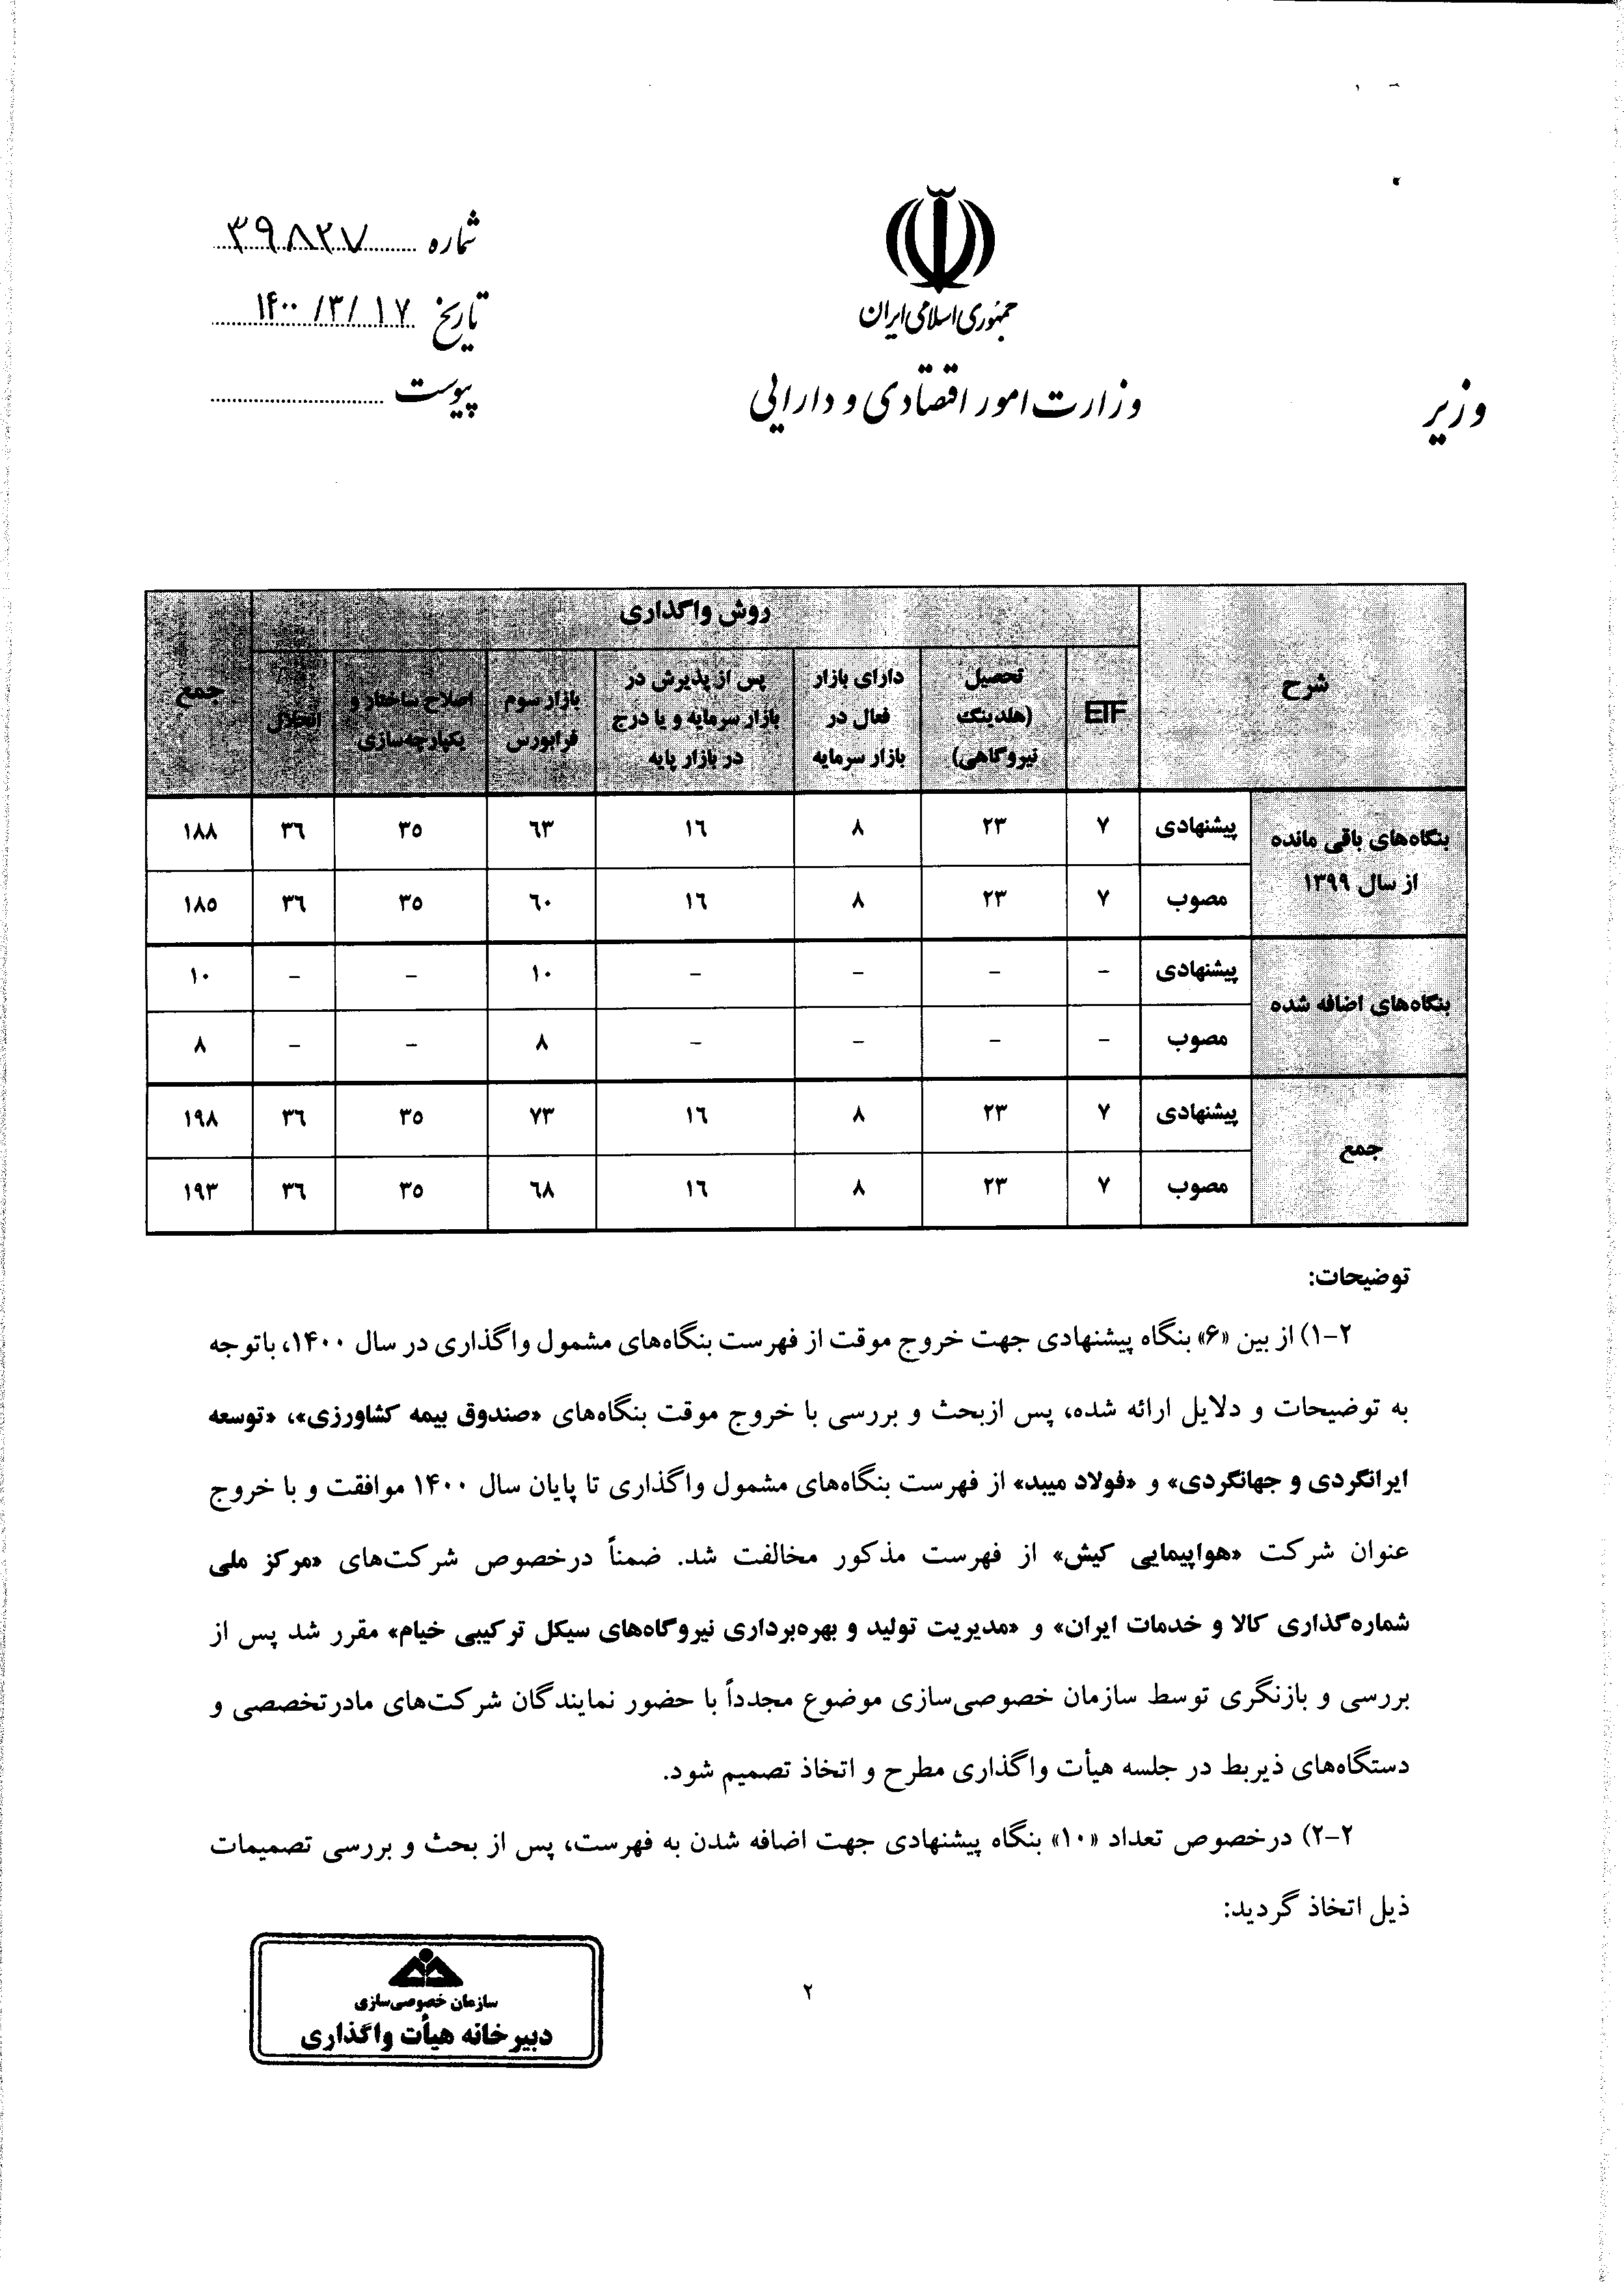 شماره ۳۹۸۲۷
تاریخ ۱۴۰۰/۳/۱۷
پیوست
جمهوری اسلامی ایران
وزارت امور اقتصادی و دارایی
وزیر
شرح روش واگذاری جمع
ETF تحصیل (هلدینگ نیروگاهی) دارای بازار فعال در بازار سرمایه پس از پذیرش در بازار سرمایه و یا درج در بازار پایه بازار سوم فرابورس اصلاح ساختار و یکپارچه‌سازی انحلال
بنگاه‌های باقی مانده از سال ۱۳۹۹ پیشنهادی ۷ ۲۳ ۸ ۱۶ ۶۳ ۳۵ ۳۶ ۱۸۸
مصوب ۷ ۲۳ ۸ ۱۶ ۶۰ ۳۵ ۳۶ ۱۸۵
بنگاه‌های اضافه شده پیشنهادی - - - - ۱۰ - - ۱۰
مصوب - - - - ۸ - - ۸
جمع پیشنهادی ۷ ۲۳ ۸ ۱۶ ۷۳ ۳۵ ۳۶ ۱۹۸
مصوب ۷ ۲۳ ۸ ۱۶ ۶۸ ۳۵ ۳۶ ۱۹۳
توضیحات:
۲-۱) از بین «۶» بنگاه پیشنهادی جهت خروج موقت از فهرست بنگاه‌های مشمول واگذاری در سال ۱۴۰۰، باتوجه
به توضیحات و دلایل ارائه شده، پس ازبحث و بررسی با خروج موقت بنگاه‌های «صندوق بیمه کشاورزی»، «توسعه
ایرانگردی و جهانگردی» و «فولاد میبد» از فهرست بنگاه‌های مشمول واگذاری تا پایان سال ۱۴۰۰ موافقت و با خروج
عنوان شرکت «هواپیمایی کیش» از فهرست مذکور مخالفت شد. ضمناً درخصوص شرکت‌های «مرکز ملی
شماره‌گذاری کالا و خدمات ایران» و «مدیریت تولید و بهره‌برداری نیروگاه‌های سیکل ترکیبی خیام» مقرر شد پس از
بررسی و بازنگری توسط سازمان خصوصی‌سازی موضوع مجدداً با حضور نمایندگان شرکت‌های مادرتخصصی و
دستگاه‌های ذیربط در جلسه هیأت واگذاری مطرح و اتخاذ تصمیم شود.
۲-۲) درخصوص تعداد «۱۰» بنگاه پیشنهادی جهت اضافه شدن به فهرست، پس از بحث و بررسی تصمیمات
ذیل اتخاذ گردید:
۲
سازمان خصوصی‌سازی
دبیرخانه هیأت واگذاری